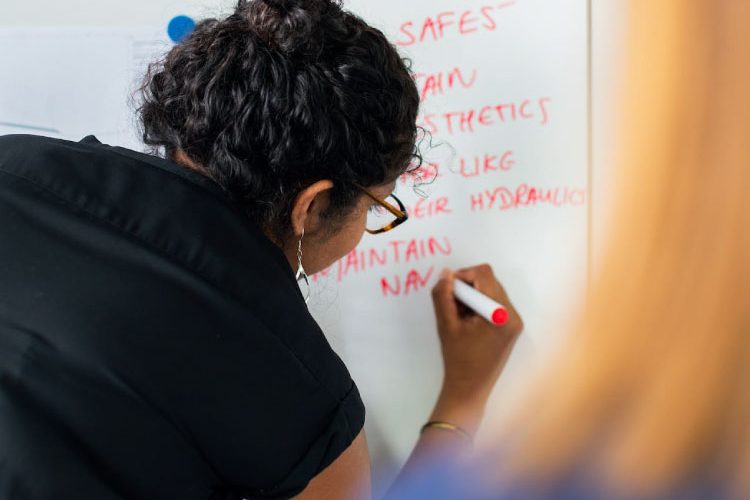 SAFES
TAIN
STHETICS
LIKE
HYDRAULICS
MAINTAIN
NAV